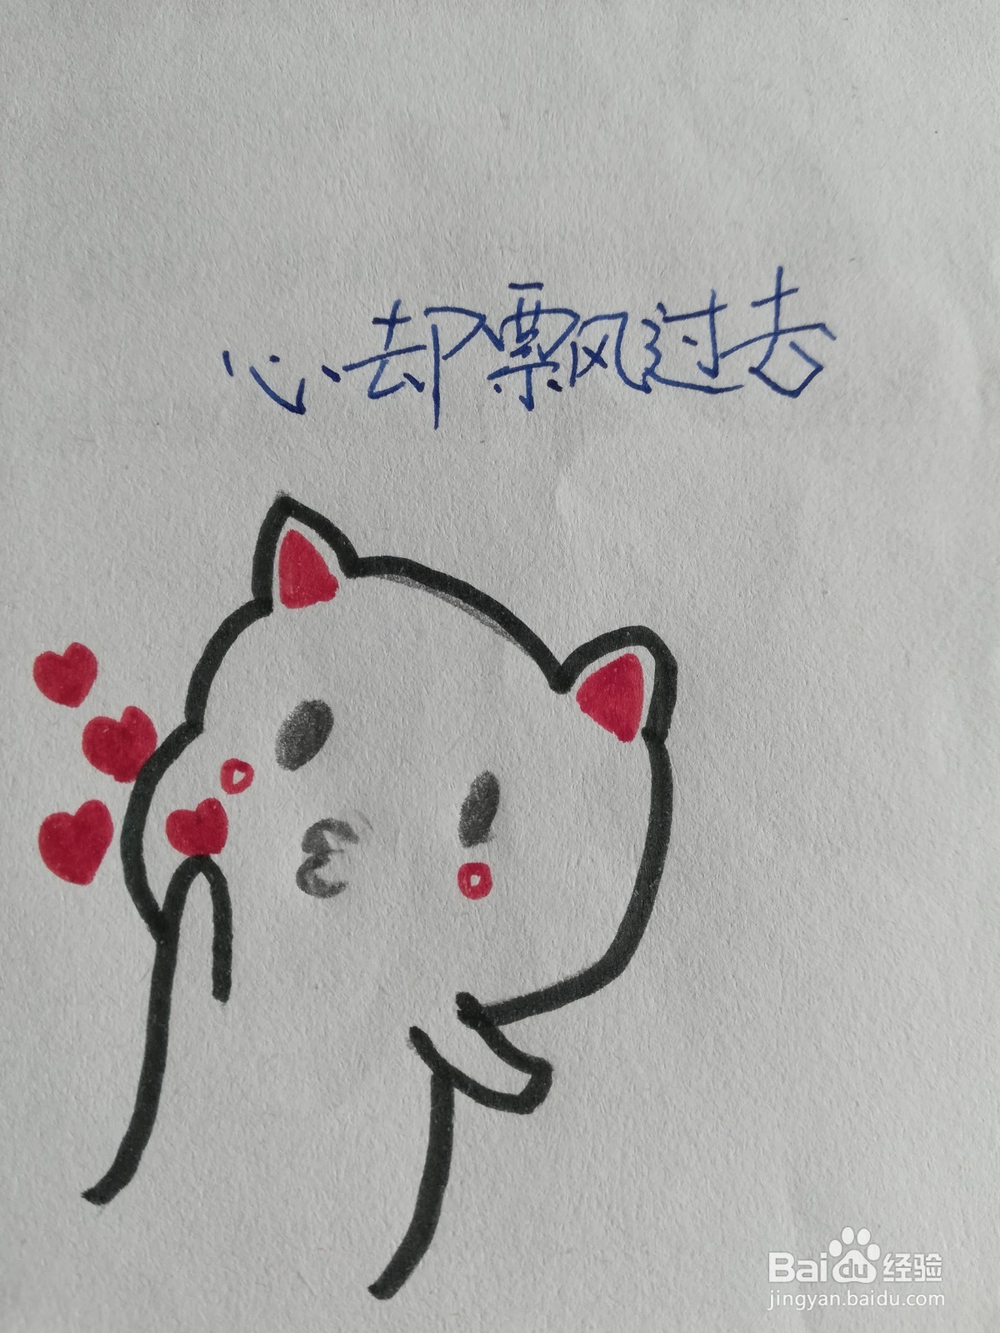 心却飘过去
Baidu经验
jingyan.baidu.com